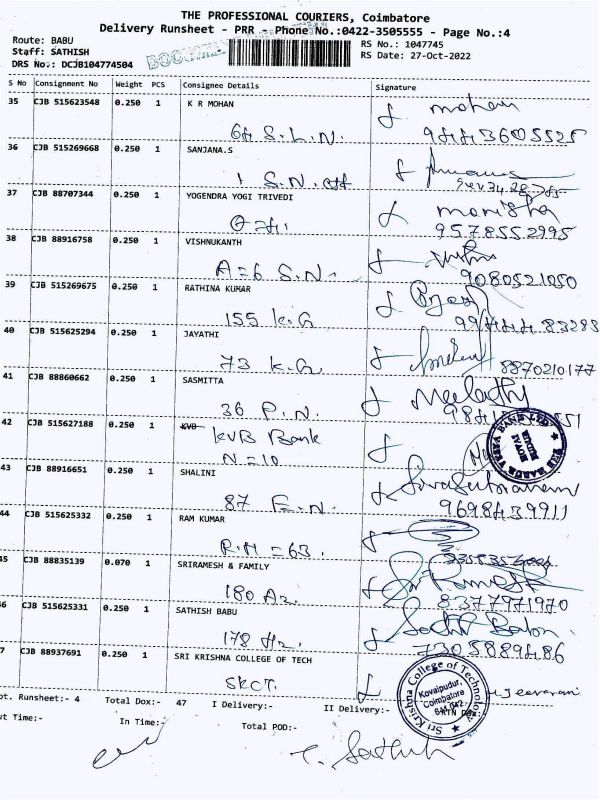 THE PROFESSIONAL COURIERS, Coimbatore
Delivery Runsheet - PRR - Phone No.:0422-3505555 - Page No.:4
Route: BABU
RS No.: 1047745
Staff: SATHISH
RS Date: 27-Oct-2022
DRS No.: DCJB104774504
S No Consignment No Weight PCS Consignee Details Signature
35 CJB 515623548 0.250 1 K R MOHAN mohan
64 S.L.N. 9443605525
36 CJB 515269668 0.250 1 SANJANA.S
1 S.N.
37 CJB 88707344 0.250 1 YOGENDRA YOGI TRIVEDI manisha
9578552995
38 CJB 88916758 0.250 1 VISHNUKANTH
A=6 S.N. 9080521050
39 CJB 515269675 0.250 1 RATHINA KUMAR
155 K.G 83283
40 CJB 515625294 0.250 1 JAYATHI
73 K.G. 8870210177
41 CJB 88860662 0.250 1 SASMITTA
36 P.N.
42 CJB 515627188 0.250 1 KVB
KVB Bank
N=10
43 CJB 88916651 0.250 1 SHALINI
87 F.N. 9698439911
44 CJB 515625332 0.250 1 RAM KUMAR
R.H=63.
45 CJB 88835139 0.070 1 SRIRAMESH & FAMILY Sri Ramesh
180 8377971970
46 CJB 515625331 0.250 1 SATHISH BABU
178 7305889486
7 CJB 88937691 0.250 1 SRI KRISHNA COLLEGE OF TECH
SKCT.
Sri Krishna College of Technology
Kovaipudur,
Coimbatore
pt. Runsheet:- 4 Total Dox:- 47 I Delivery:- II Delivery:-
ut Time:- In Time:- Total POD:-
Sathish